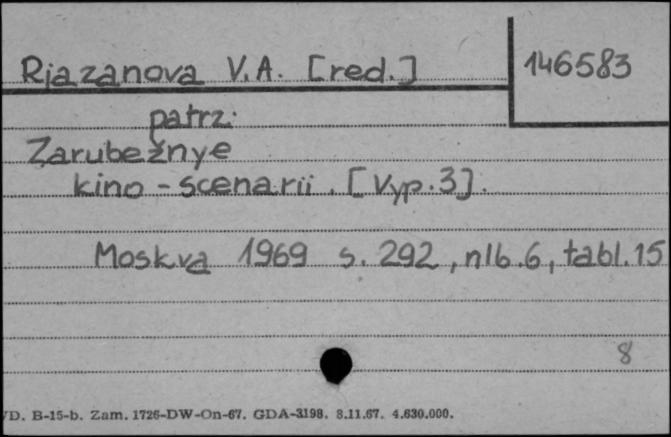 Rjazanova V.A. [red.] 146583
patrz:
Zarubežnye
kino-scenarii. [Vyp.3].
Moskva 1969 s. 292, nlb.6, tabl.15
8
D. B-15-b. Zam. 1726-DW-On-67. GDA-3198. 8.11.67. 4.630.000.